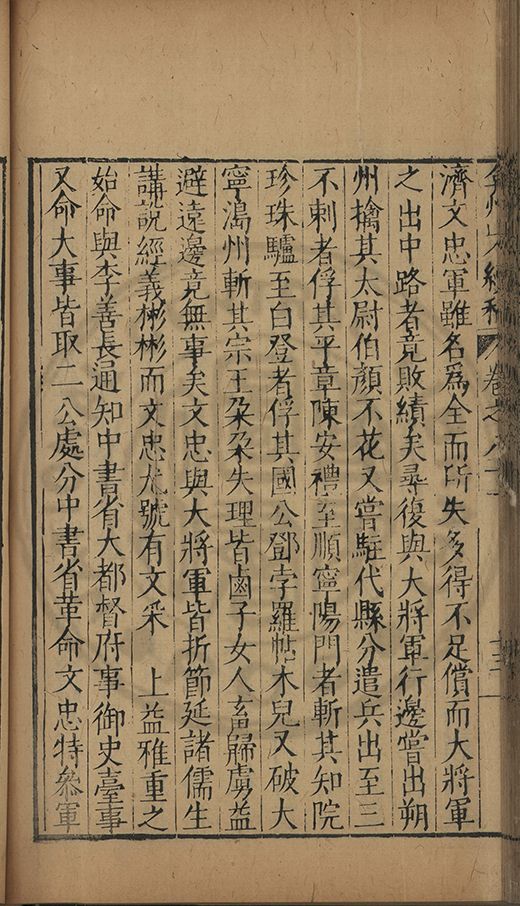 弇州山人續稿 卷之八十一 十三
濟文忠軍雖名爲全而所失多得不足償而大將軍
之出中路者竟敗績矣尋復與大將軍行邊嘗出朔
州擒其太尉伯顏不花又嘗駐代縣分遣兵出至三
不剌者俘其平章陳安禮至順寧陽門者斬其知院
珍珠驢至白登者俘其國公鄧孛羅帖木兒又破大
寧溤州斬其宗王朶朶失理皆鹵子女人畜歸虜益
避遠邊竟無事矣文忠與大將軍皆折節延諸儒生
講說經義彬彬而文忠尤號有文采 上益雅重之
始命與李善長通知中書省大都督府事御史臺事
又命大事皆取二公處分中書省革命文忠特叅軍